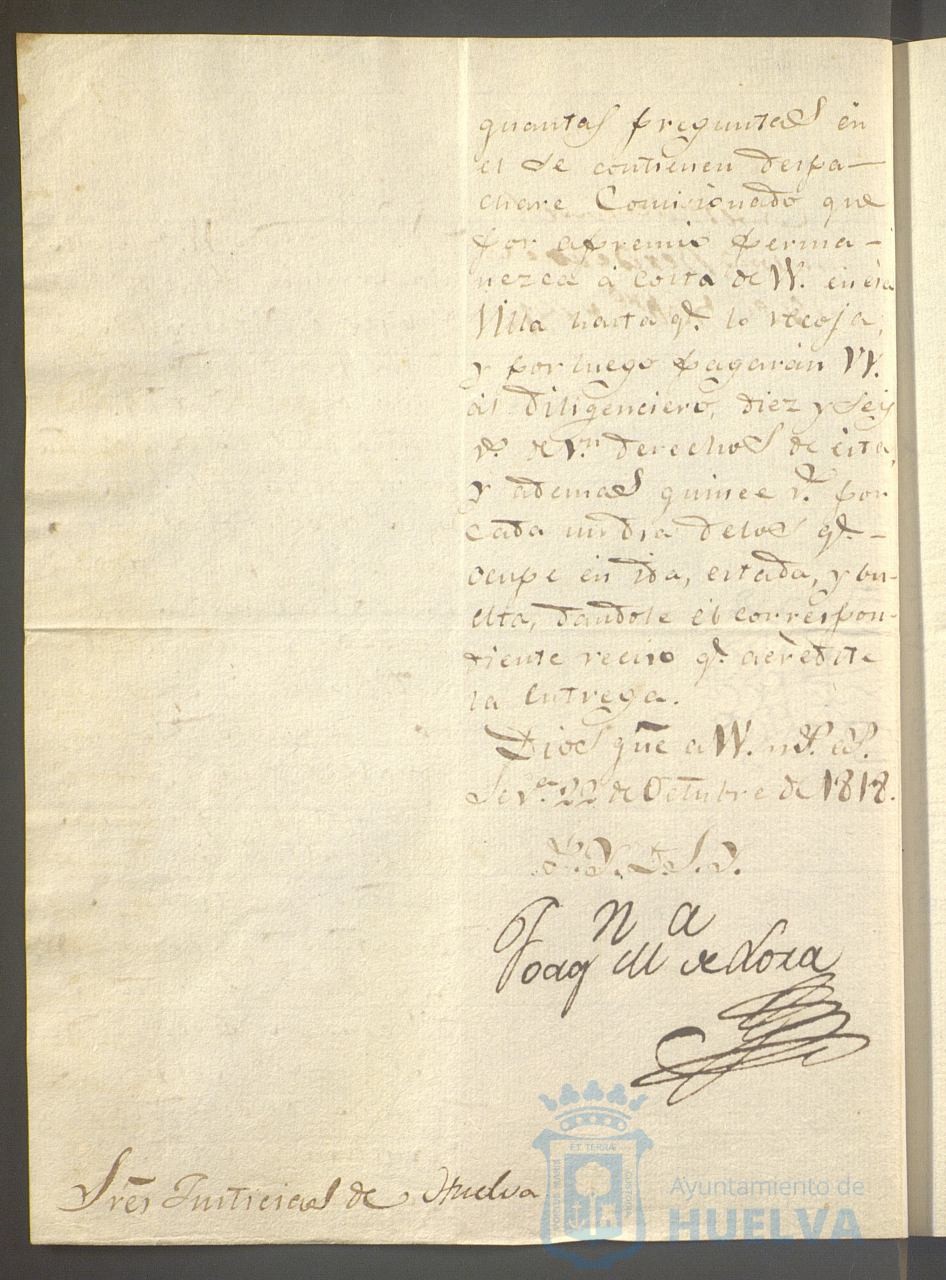 quantas preguntas en
el se contienen despa-
chare Comisionado que
por apremio perma-
nezca á costa de VV. en esa
Villa hasta qe. lo recoja,
y por luego pagarán VV.
al Diligenciero, diez y seis
rs. de vn. derechos de esta,
y ademas quince rs. por
cada un dia delos qe. -
ocupe en ida, estada, y bu-
elta, dandole el correspon-
diente recivo qe. acredite
la Entrega.
Dios gũe a VV. ms. as.
Seva. 22 de Octubre de 1818.
Joaqn Ma de Lora
Srẽs Justicias de Huelva
ET TERRA
Ayuntamiento de
HUELVA